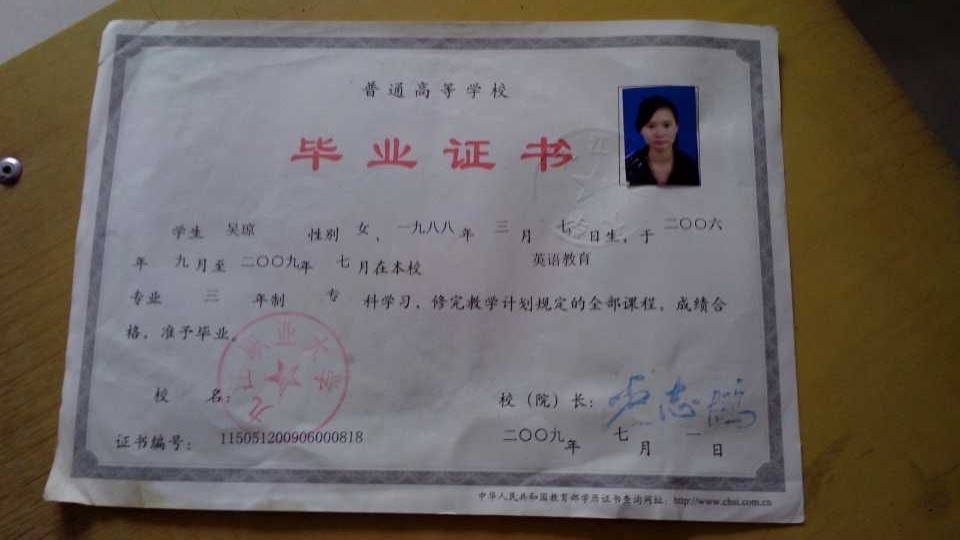 普通高等学校
毕业证书
学生 吴琼 性别 女，一九八八年 三 月 七 日生，于 二〇〇六
年 九 月至 二〇〇九年 七 月在本校 英语教育
专业 三 年制 专 科学习，修完教学计划规定的全部课程，成绩合
格，准予毕业。
九江职业大学
校 名：
校（院）长：
证书编号：115051200906000818
二〇〇九年 七 月 一 日
中华人民共和国教育部学历证书查询网址：http://www.chsi.com.cn